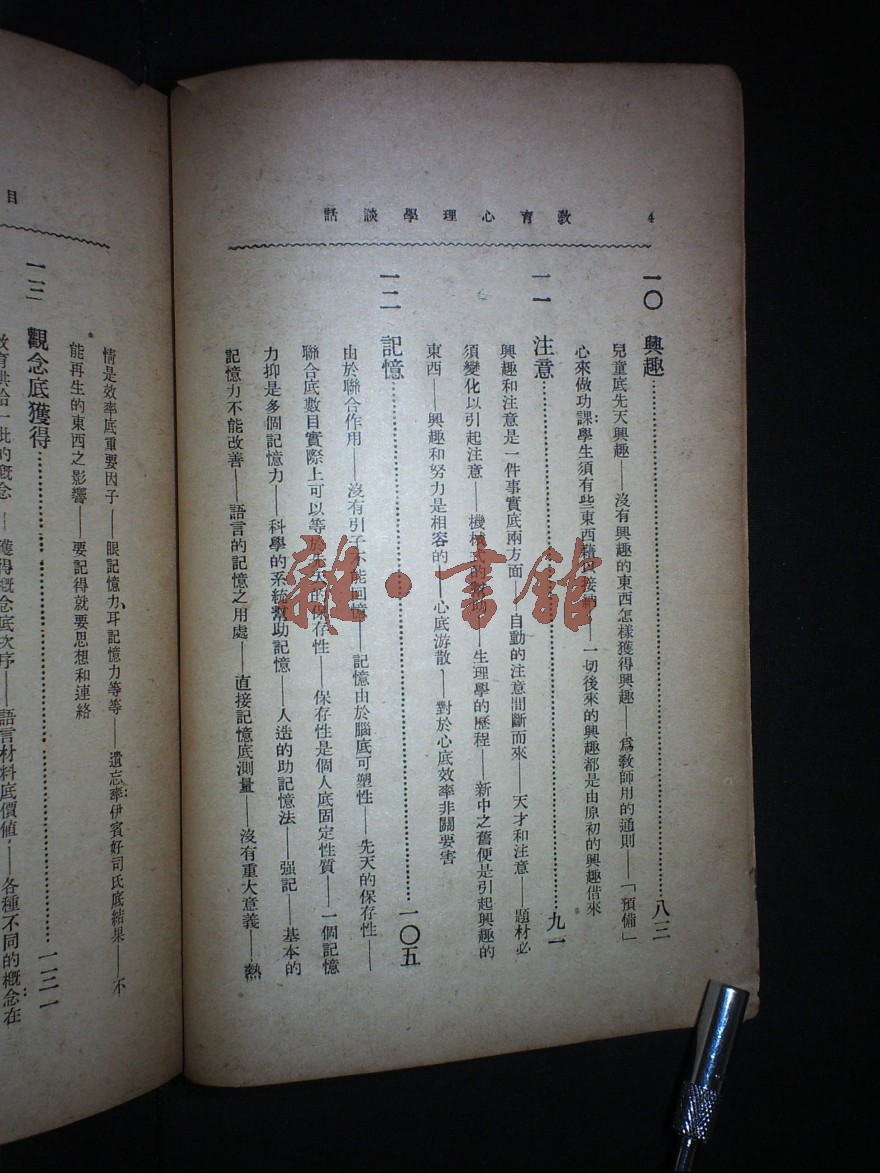 4　教育心理學談話
一〇　興趣……八三
兒童底先天興趣——沒有興趣的東西怎樣獲得興趣——爲敎師用的通則——「預備」
心來做功課：學生須有些東西藉以接——一切後來的興趣都是由原初的興趣借來
一一　注意……九一
興趣和注意是一件事實底兩方面——自動的注意間斷而來——天才和注意——題材必
須變化以引起注意——機械式的——生理學的歷程——新中之舊便是引起興趣的
東西——興趣和努力是相容的——心底游散——對於心底效率非關要害
一二　記憶……一〇五
由於聯合作用——沒有引子不能回憶——記憶由於腦底可塑性——先天的保存性——
聯合底數目實際上可以等於先天的保存性——保存性是個人底固定性質——一個記憶
力抑是多個記憶力——科學的系統幫助記憶——人造的助記憶法——强記——基本的
記憶力不能改善——語言的記憶之用處——直接記憶底測量——沒有重大意義——熱
雜·書館
目
情是效率底重要因子——眼記憶力、耳記憶力等等——遺忘率：伊賓好司氏底結果——不
能再生的東西之影響——要記得就要思想和連絡
一三　觀念底獲得……一二一
敎育供給一批的概念——獲得概念底次序——語言材料底價値——各種不同的概念在